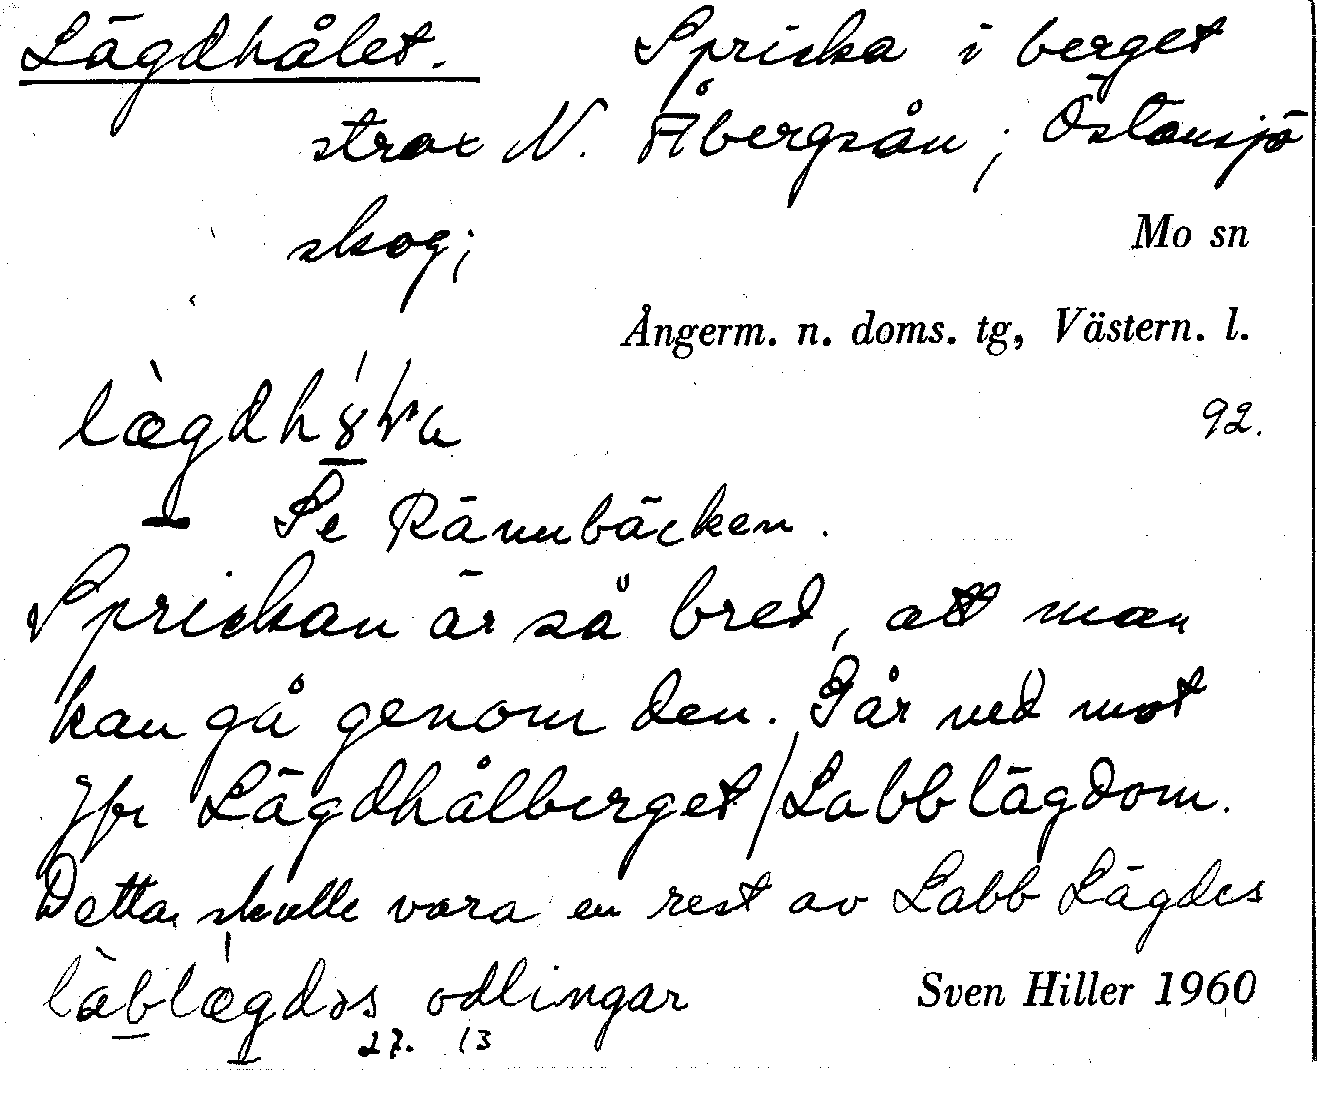 Lägdhålet. Spricka i berget
strax N. Åbergsån; Östansjö
skog; Mo sn
Ångerm. n. doms. tg, Västern. l.
92.
Se Rännbäcken.
Sprickan är så bred, att man
kan gå genom den. Går ned mot
Jfr Lägdhålberget/Labblägdom.
Detta skulle vara en rest av Labb Lägdes
odlingar Sven Hiller 1960
27. 13